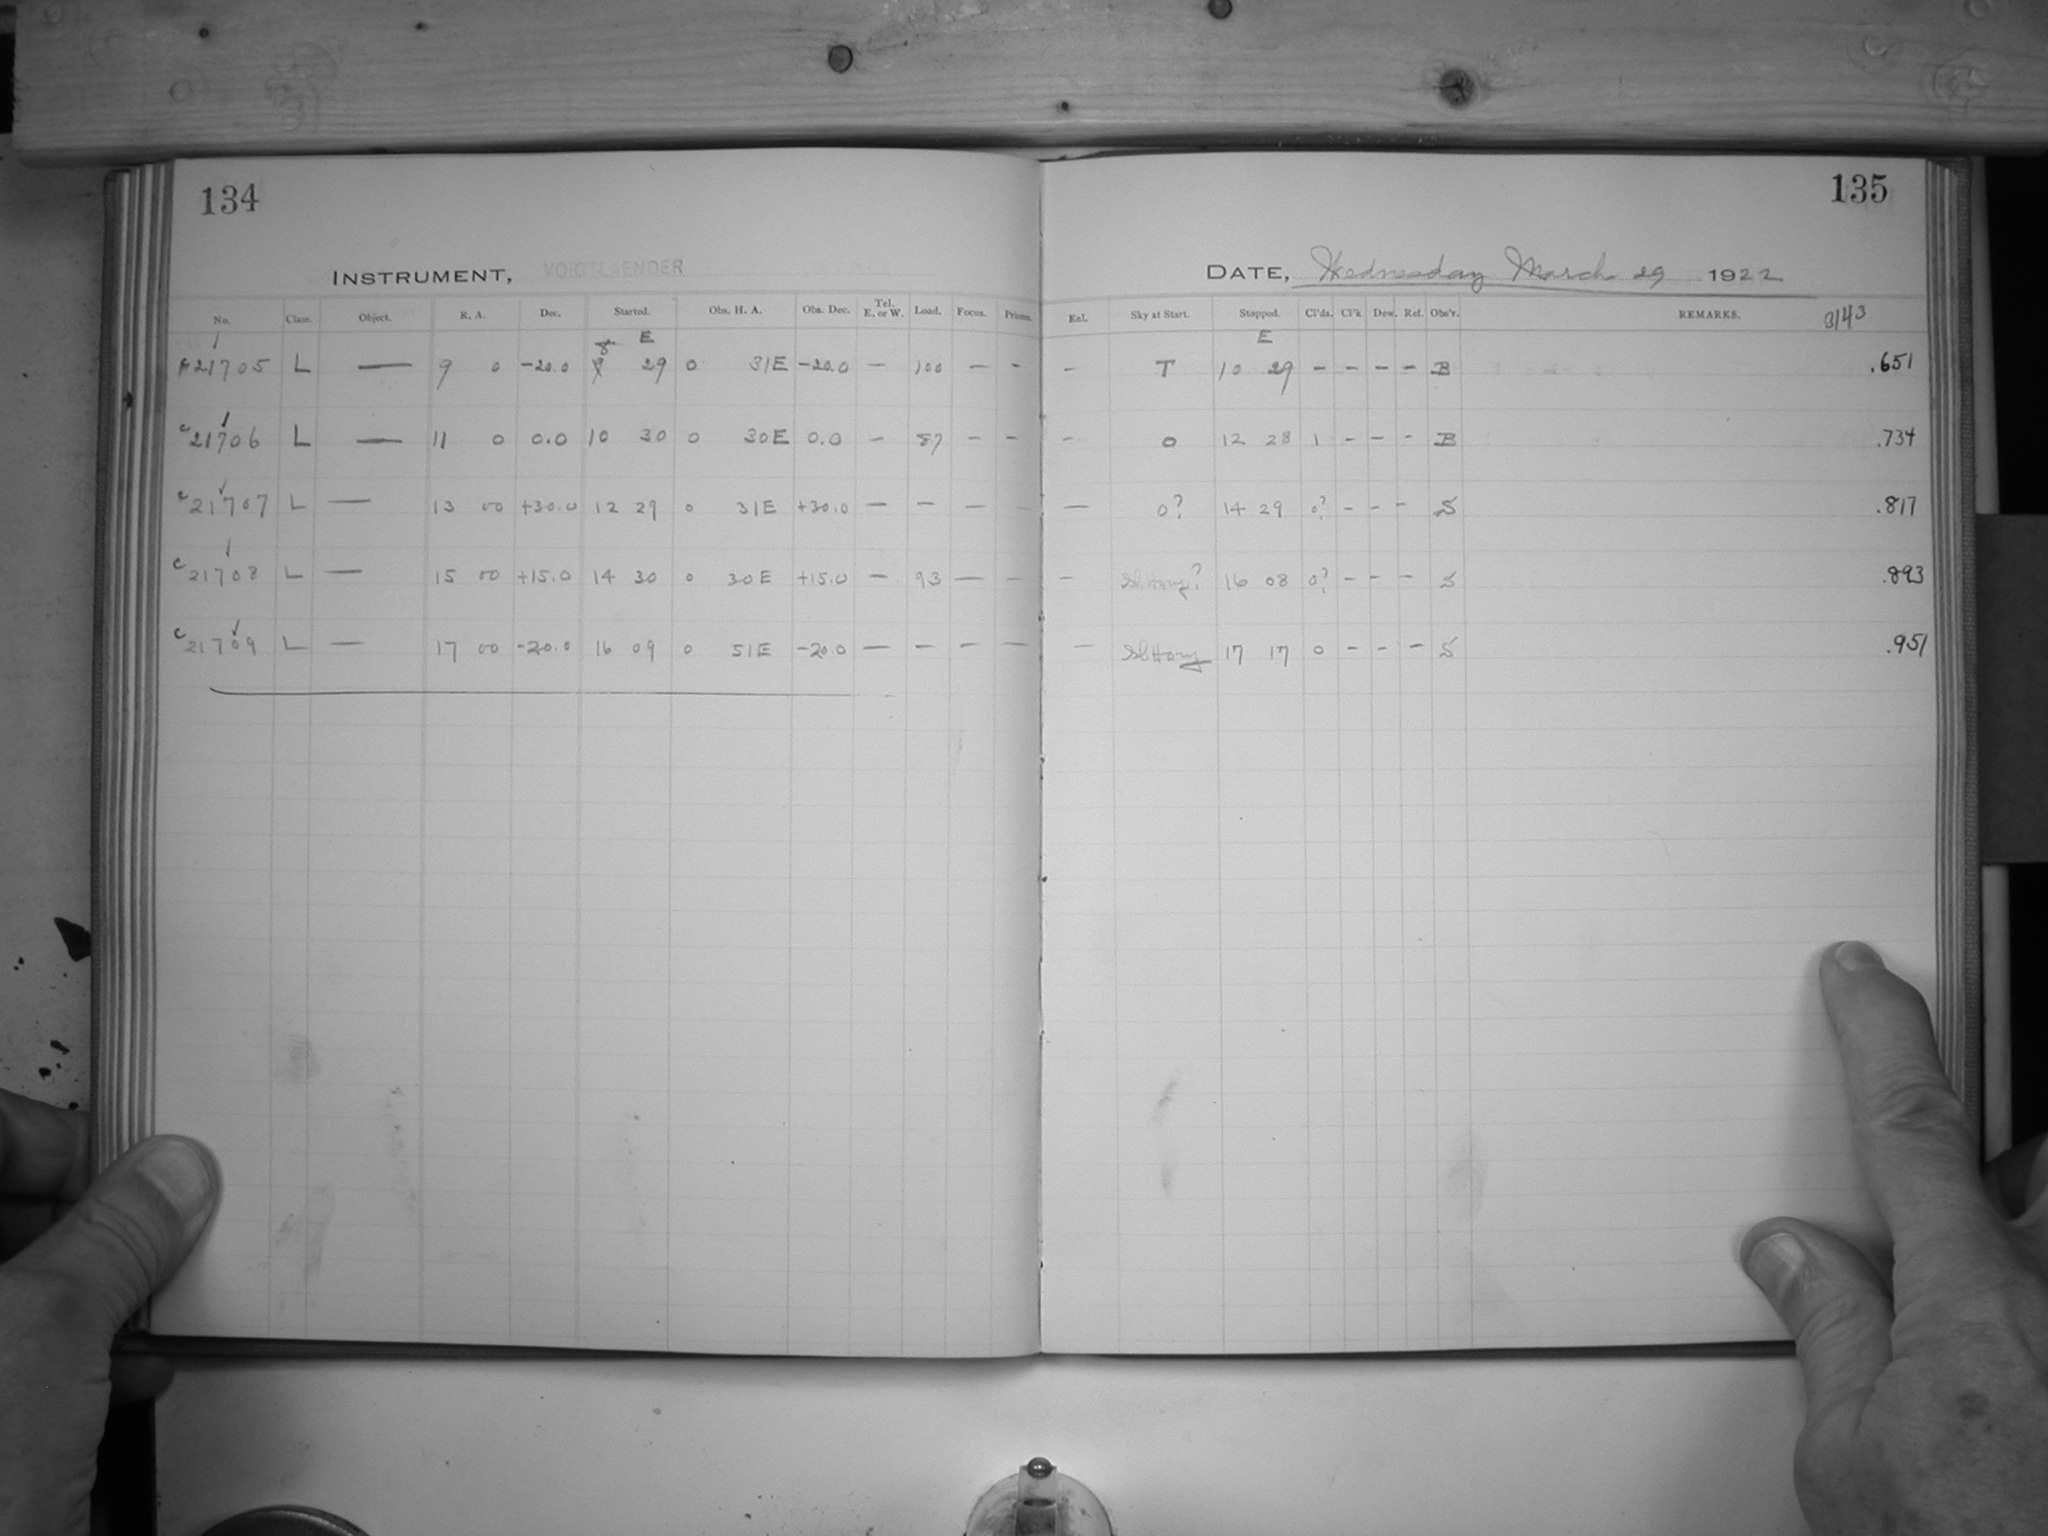 134
INSTRUMENT, VOIGTLAENDER
No. Class. Object. R. A. Dec. Started. Obs. H. A. Obs. Dec. Tel. E. or W. Load. Focus. Prisms.
8 E
21705 L — 9 0 -20.0 9 29 0 31E -20.0 — 100 — -
c21706 L — 11 0 0.0 10 30 0 30E 0.0 - 87 - -
c21707 L — 13 00 +30.0 12 29 0 31E +30.0 — — — -
c21708 L — 15 00 +15.0 14 30 0 30E +15.0 — 93 — -
c21709 L — 17 00 -20.0 16 09 0 51E -20.0 — — — —
135
DATE, Wednesday March 29 1922
Exl. Sky at Start. Stopped. Cl'ds. Cl'k Dew. Ref. Obs'r. REMARKS. 3143
E
- T 10 29 - - - - B .651
- 0 12 28 1 - - - B .734
— 0? 14 29 0? - - - S .817
- Sl. Hazy? 16 08 0? - - - S .893
- Sl Hazy 17 17 0 - - - S .951